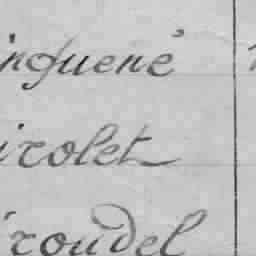 inguené
irolet
iroudel